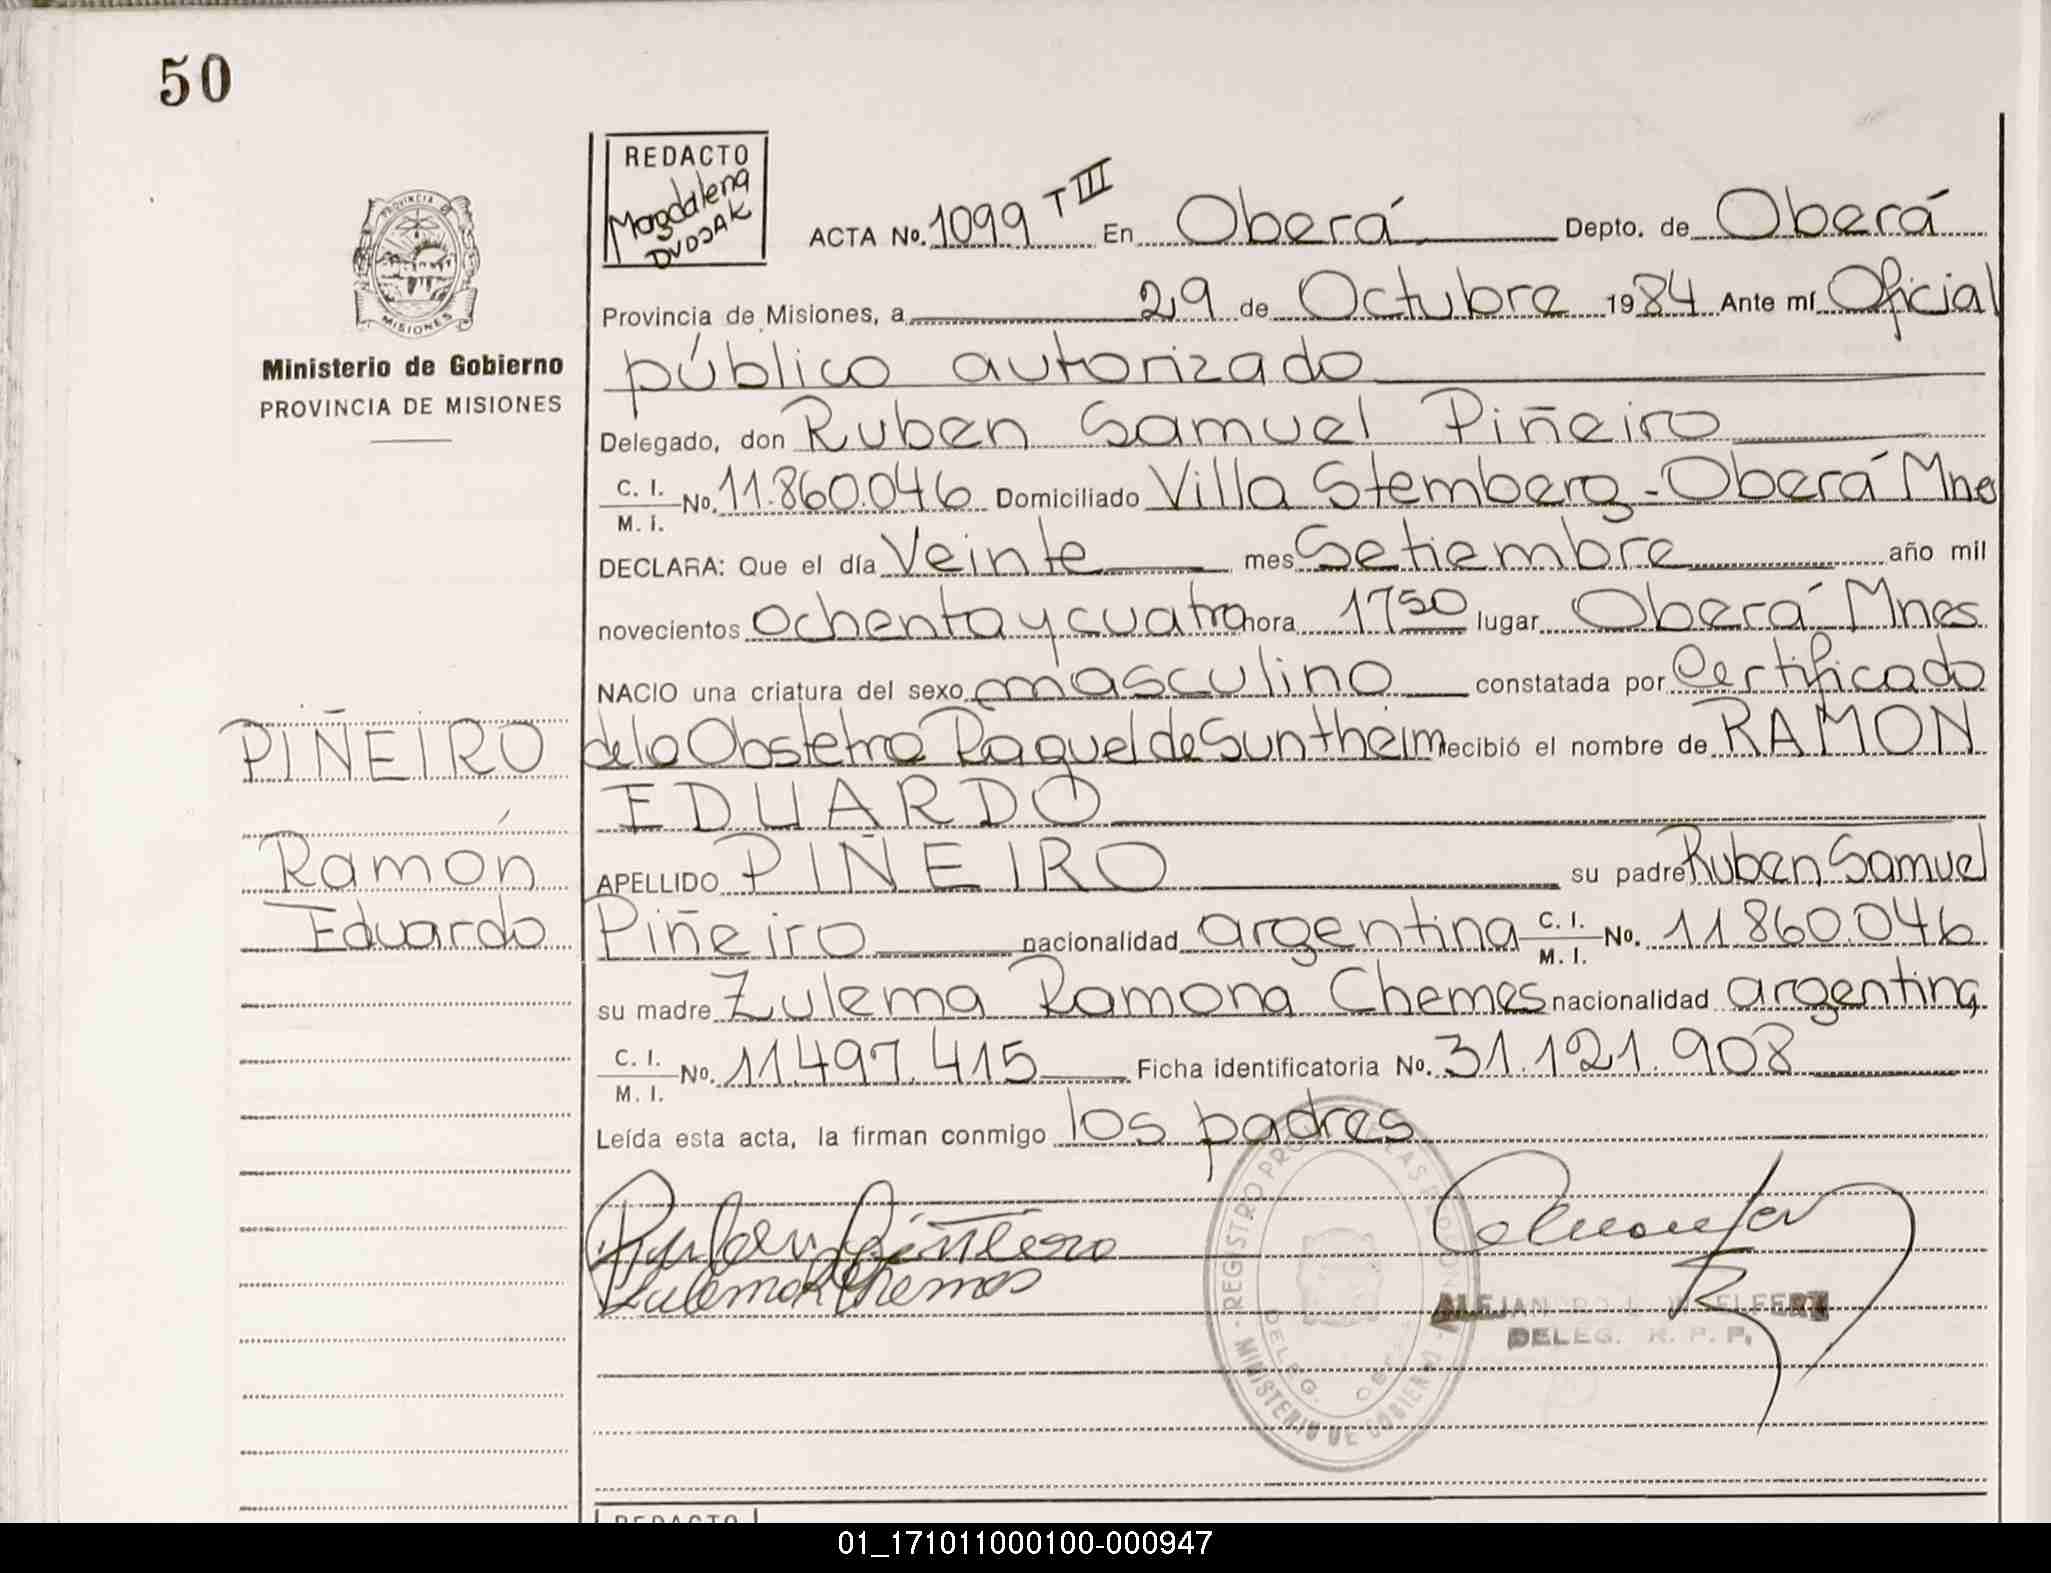 50
REDACTO
Magdalena
DUDJAK
ACTA No. 1099 T III En Oberá Depto. de Oberá
PROVINCIA DE
MISIONES
Provincia de Misiones, a 29 de Octubre 1984 Ante mí Oficial
Ministerio de Gobierno
PROVINCIA DE MISIONES
público autorizado
Delegado, don Ruben Samuel Piñeiro
C. I.
M. I. No. 11.860.046 Domiciliado Villa Stemberg - Oberá Mnes
DECLARA: Que el día Veinte mes Setiembre año mil
novecientos ochenta y cuatro hora 1750 lugar Oberá Mnes.
NACIO una criatura del sexo masculino constatada por Certificado
PIÑEIRO
de la Obstetra Raquel de Suntheim recibió el nombre de RAMON
EDUARDO
Ramón
Eduardo
APELLIDO PIÑEIRO su padre Ruben Samuel
Piñeiro nacionalidad argentina C. I.
M. I. No. 11.860.046
su madre Zulema Ramona Chemes nacionalidad argentina,
C. I.
M. I. No. 11.497.415 Ficha identificatoria No. 31.121.908
Leída esta acta, la firman conmigo los padres
Ruben Piñeiro
Zulema R Chemes
REGISTRO DE LAS PERSONAS
MINISTERIO DE GOBIERNO
DELEG.
DELEG. R. P. P.
REDACTO
01_171011000100-000947